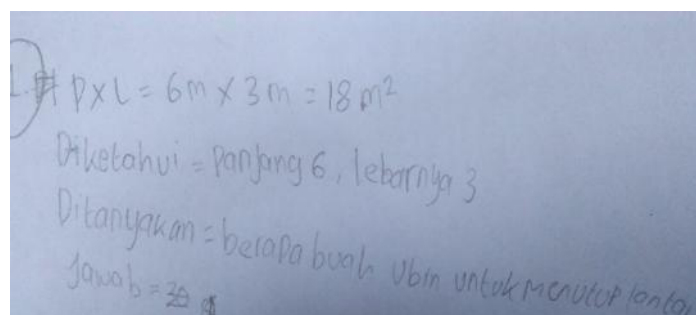 1. P x L = 6m x 3m = 18 m²
Diketahui = Panjang 6, lebarnya 3
Ditanyakan = berapa buah Ubin untuk menutup lantai
Jawab =